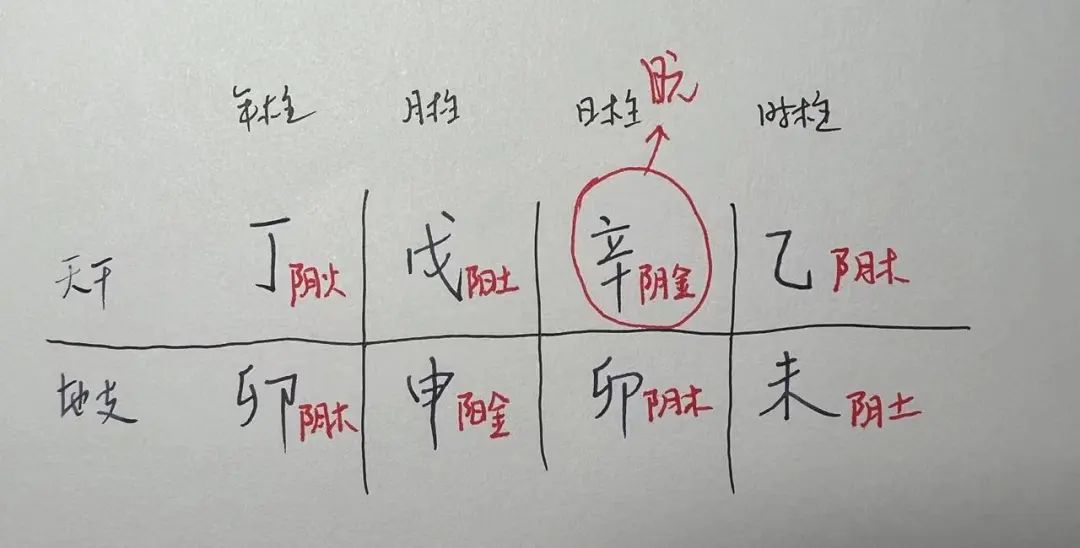 日元
年柱 月柱 日柱 时柱
天干 丁阴火 戊阳土 辛阴金 乙阴木
地支 卯阴木 申阳金 卯阴木 未阴土